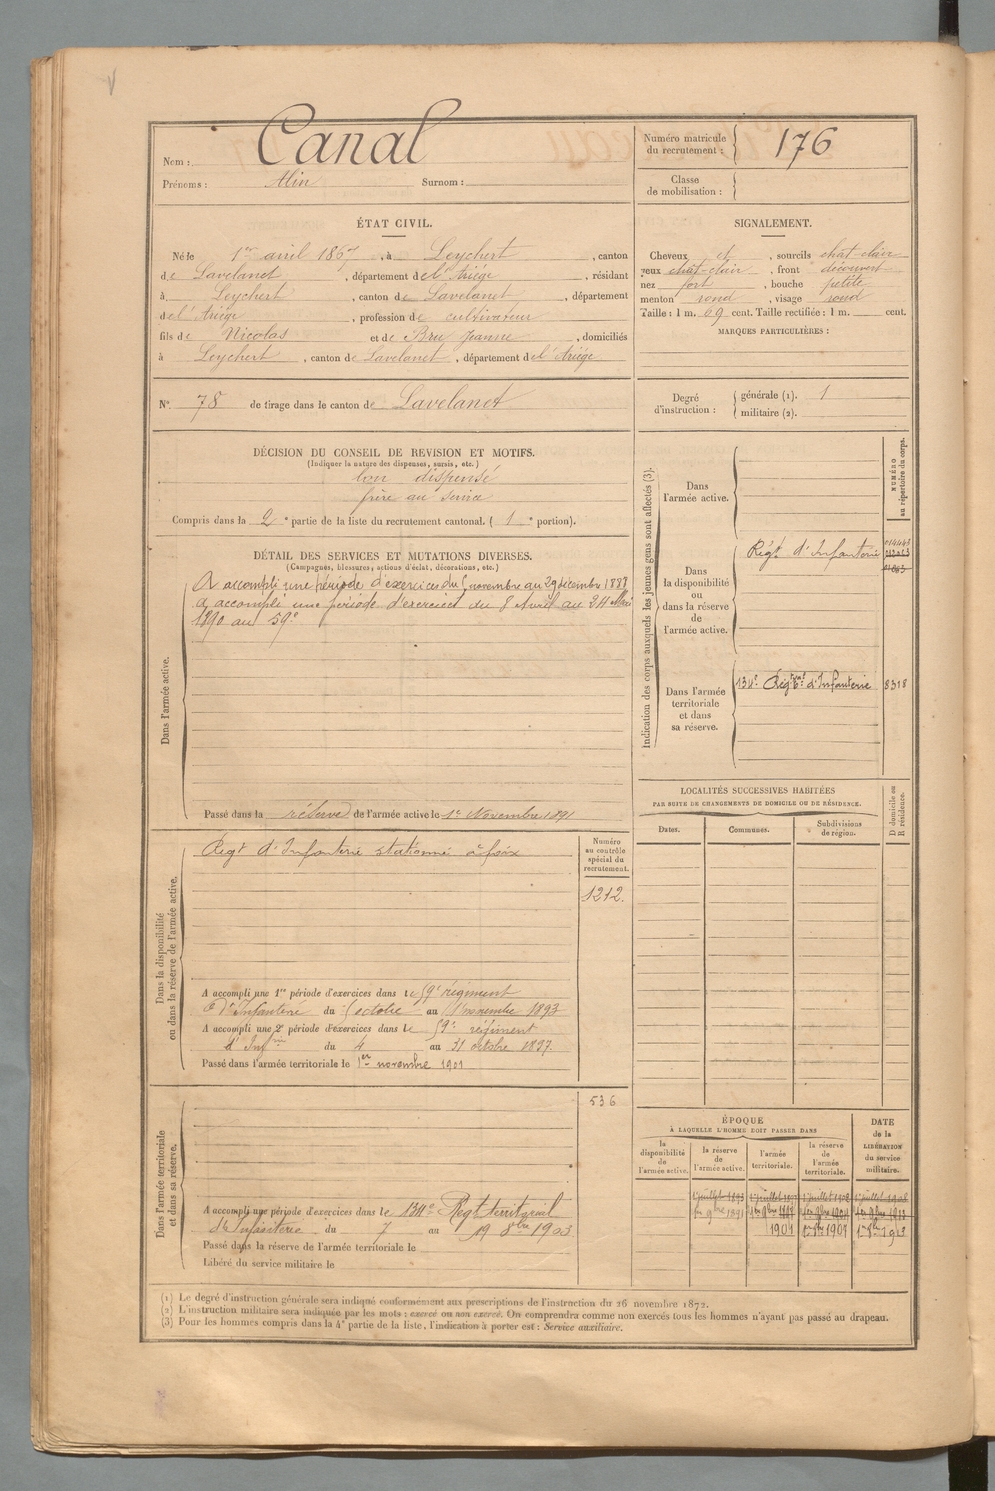 Nom : Canal
Prénoms : Alin Surnom :
Numéro matricule
du recrutement : 176
Classe
de mobilisation :
ÉTAT CIVIL.
Né le 1er avril 1867, à Leychert, canton
de Lavelanet, département de l'Ariège, résidant
à Leychert, canton de Lavelanet, département
de l'Ariège, profession de cultivateur
fils de Nicolas et de Bru Jeanne, domiciliés
à Leychert, canton de Lavelanet, département de l'Ariège
SIGNALEMENT.
Cheveux et, sourcils chat-clair
yeux chat-clair, front découvert
nez fort, bouche petite
menton rond, visage rond
Taille : 1 m. 69 cent. Taille rectifiée : 1 m. cent.
MARQUES PARTICULIÈRES :
N° 78 de tirage dans le canton de Lavelanet
Degré
d'instruction :
générale (1). 1
militaire (2).
DÉCISION DU CONSEIL DE REVISION ET MOTIFS.
(Indiquer la nature des dispenses, sursis, etc.)
bon dispensé
frère au service
Compris dans la 2e partie de la liste du recrutement cantonal. (1e portion).
DÉTAIL DES SERVICES ET MUTATIONS DIVERSES.
(Campagnes, blessures, actions d'éclat, décorations, etc.)
Dans l'armée active.
A accompli une période d'exercices du 5 novembre au 29 décembre 1888
a accompli une période d'exercices du 8 Avril au 24 Mai
1890 au 59e
Passé dans la réserve de l'armée active le 1er Novembre 1891
Indication des corps auxquels les jeunes gens sont affectés (3).
NUMÉRO
au répertoire du corps.
Dans
l'armée active.
Dans
la disponibilité
ou
dans la réserve
de
l'armée active.
Régt d'Infanterie
Dans l'armée
territoriale
et dans
sa réserve.
134e Régt tal d'Infanterie 8318
LOCALITÉS SUCCESSIVES HABITÉES
PAR SUITE DE CHANGEMENTS DE DOMICILE OU DE RÉSIDENCE.
Dates. Communes. Subdivisions
de région.
D domicile ou
R résidence.
Dans la disponibilité
ou dans la réserve de l'armée active.
Régt d'Infanterie stationné à foix
Numéro
au contrôle
spécial du
recrutement.
1212.
A accompli une 1re période d'exercices dans le 59e régiment
d'Infanterie du 5 octobre au 1 novembre 1893
A accompli une 2e période d'exercices dans le 59e régiment
d'Infrie du 4 au 31 octobre 1897.
Passé dans l'armée territoriale le 1er novembre 1901
Dans l'armée territoriale
et dans sa réserve.
536
A accompli une période d'exercices dans le 134e Régt territorial
d'Infanterie du 7 au 19 8bre 1903
Passé dans la réserve de l'armée territoriale le
Libéré du service militaire le
ÉPOQUE
À LAQUELLE L'HOMME DOIT PASSER DANS
la
disponibilité
de
l'armée active.
la réserve
de
l'armée active.
l'armée
territoriale.
la réserve
de
l'armée
territoriale.
DATE
de la
LIBÉRATION
du service
militaire.
1er juillet 1893 1er juillet 1908
1er 9bre 1891
1901 1er 8bre 1907 1er 8bre 1913
(1) Le degré d'instruction générale sera indiqué conformément aux prescriptions de l'instruction du 26 novembre 1872.
(2) L'instruction militaire sera indiquée par les mots : exercé ou non exercé. On comprendra comme non exercés tous les hommes n'ayant pas passé au drapeau.
(3) Pour les hommes compris dans la 4e partie de la liste, l'indication à porter est : Service auxiliaire.